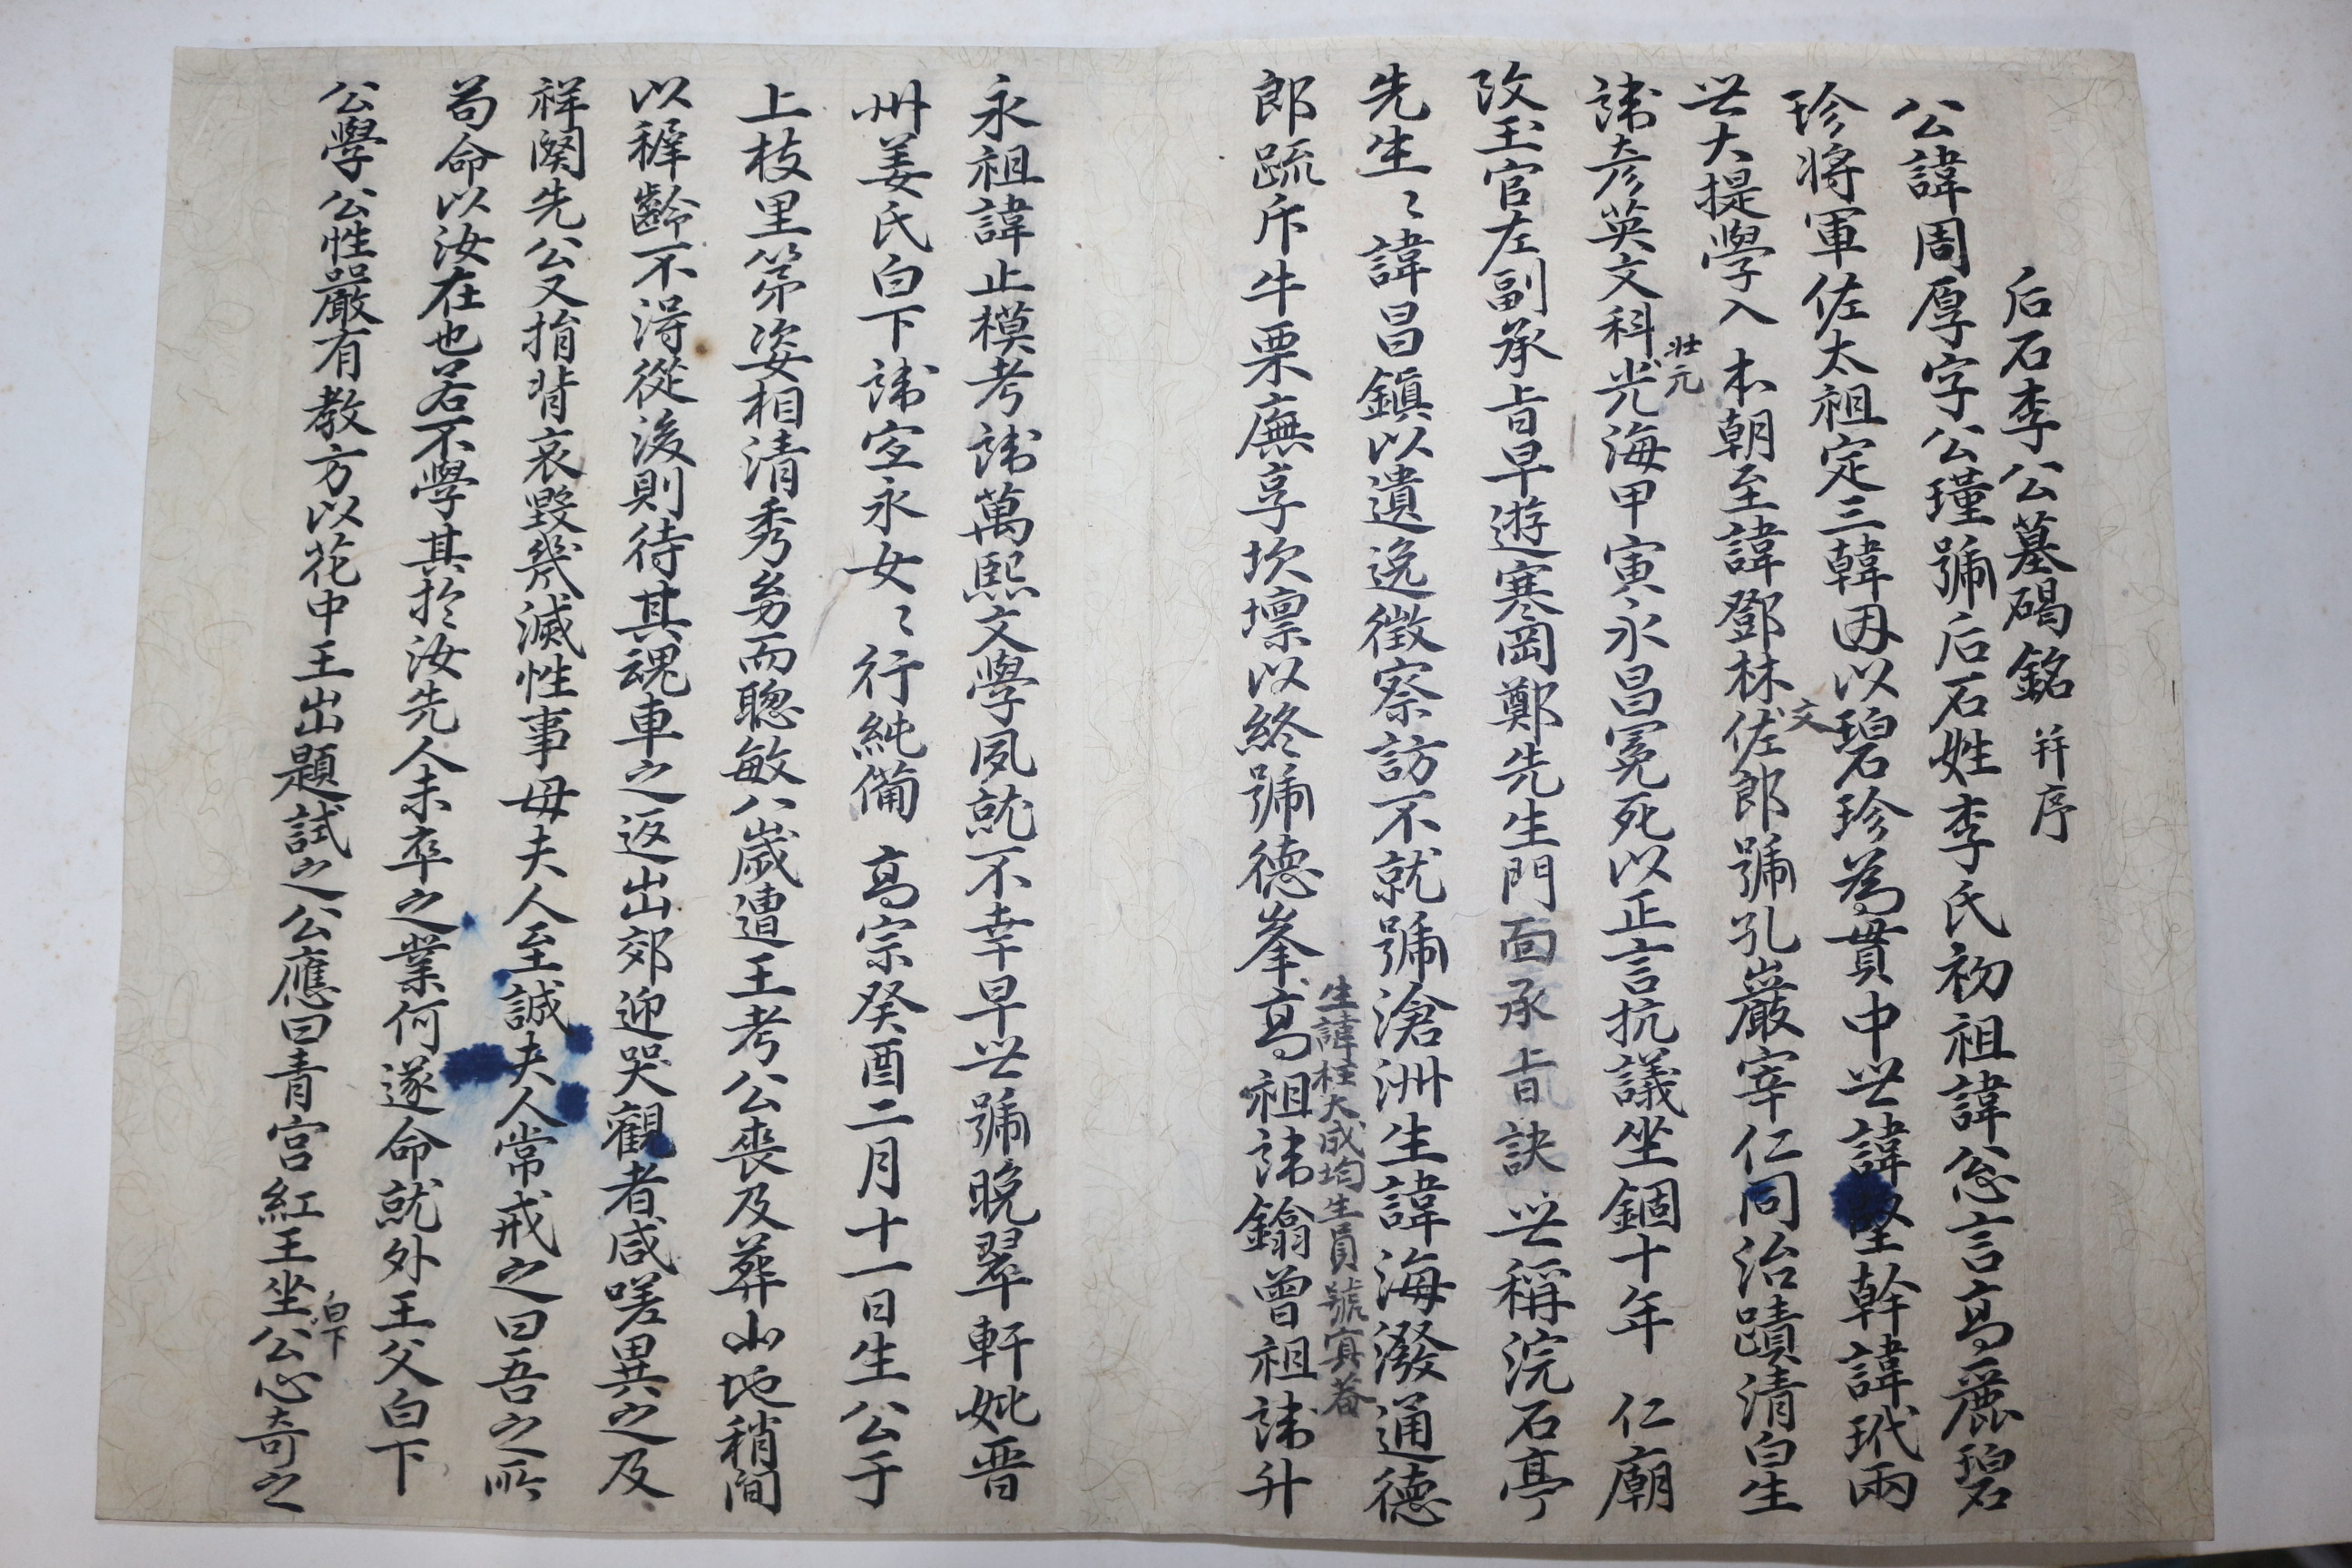 后石李公墓碣銘 并序
公諱周厚字公瑾號后石姓李氏初祖諱忩言高麗碧
珍將軍佐太祖定三韓因以碧珍為貫中世諱堅幹諱玳兩
世大提學入 本朝至諱鄧林文佐郎號孔巖宰仁同治蹟清白生
諱彦英文科壯元光海甲寅永昌冤死以正言抗議坐錮十年 仁廟
改玉官左副承旨早遊寒岡鄭先生門面承旨訣世稱浣石亭
先生〻諱昌鎭以遺逸徵察訪不就號滄洲生諱海潑通德
生諱柱大成均生員號寘菴
郎疏斥牛栗廡享坎壈以終號德峯高祖諱鎬曾祖諱升
永祖諱止模考諱萬熙文學夙就不幸早世號晩翠軒妣晋
州姜氏白下諱 永女〻行純備 高宗癸酉二月十一日生公于
上枝里第姿相清秀易而聰敏八歲遭王考公喪及葬山地稍間
以穉齡不淂從後則待其魂車之返出郊迎哭觀者咸嗟異之及
祥闋先公又捐背哀毀幾滅性事母夫人至誠夫人常戒之曰吾之所
苟命以汝在也若不學其扵汝先人未卒之業何遂命就外王父白下
公學公性嚴有教方以花中王出題試之公應曰青宮紅王坐白下公心奇之